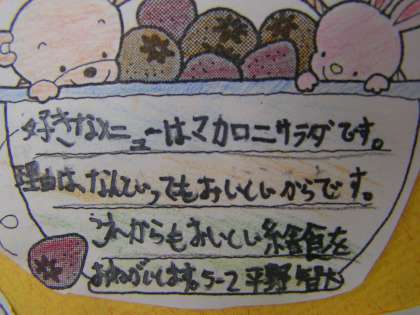 好きなメニューはマカロニサラダです。
理由は、なんといってもおいしいからです。
これからもおいしい給食を
おねがいします。5-2 平野 智大